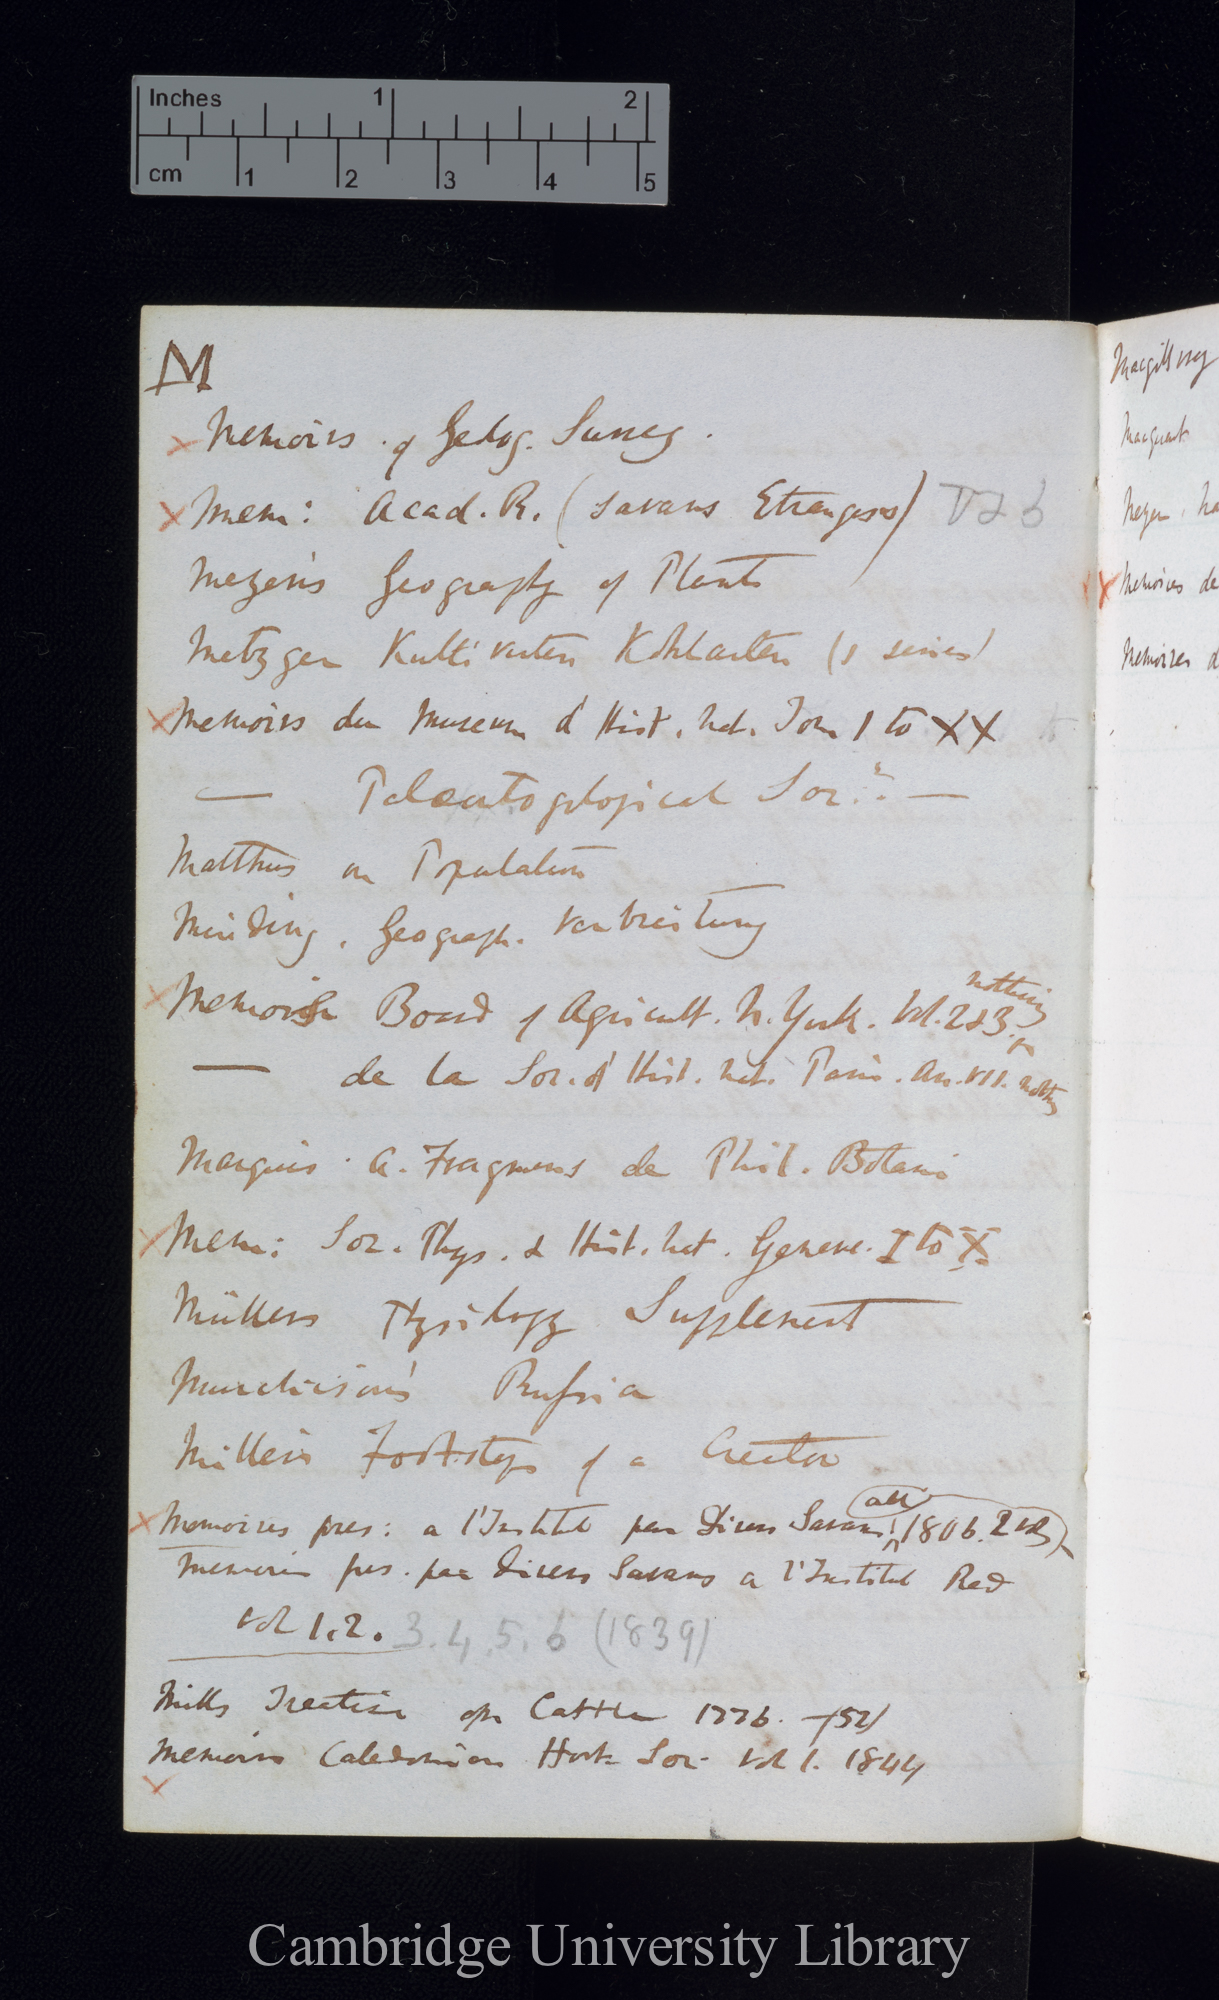 Inches 1 2
cm 1 2 3 4 5
M
Memoirs of Geolog. Survey.
Mem: Acad. R. (Savans Etrangers) V & 6
Meyen's Geography of Plants
Metzger Kultivirten Kohlarten (1 series)
Memoirs du Museum d Hist. Nat. Tom 1 to XX
— Palæontological Soc. —
Malthus on Population
Minding. Geograph. Verbreitung
Memoirs Board of Agricult. N. York. Vol. 2 & 3. nothing
— de la Soc. d Hist. Nat. Paris. An. VII. nothing
Marquis. A. Fragmens de Phil. Botani
Mem: Soc. Phys. & Hist. Nat. Geneve. I to X
Müllers Physiology Supplement
Murchison's Russia
Miller's Footsteps of a Creator
Memoires pres: a l'Institut par Divers Savans (all 1806. 2 vols)
Memoirs pres. par divers Savans a l'Institut Read
vol 1.2. 3.4.5.6 (1839)
Mills Treatise on Cattle 1776.
Memoirs Caledonian Hort Soc. vol 1. 1844
Macgillivray
Macquart
Meyen
Memoires de
Memoires
Cambridge University Library